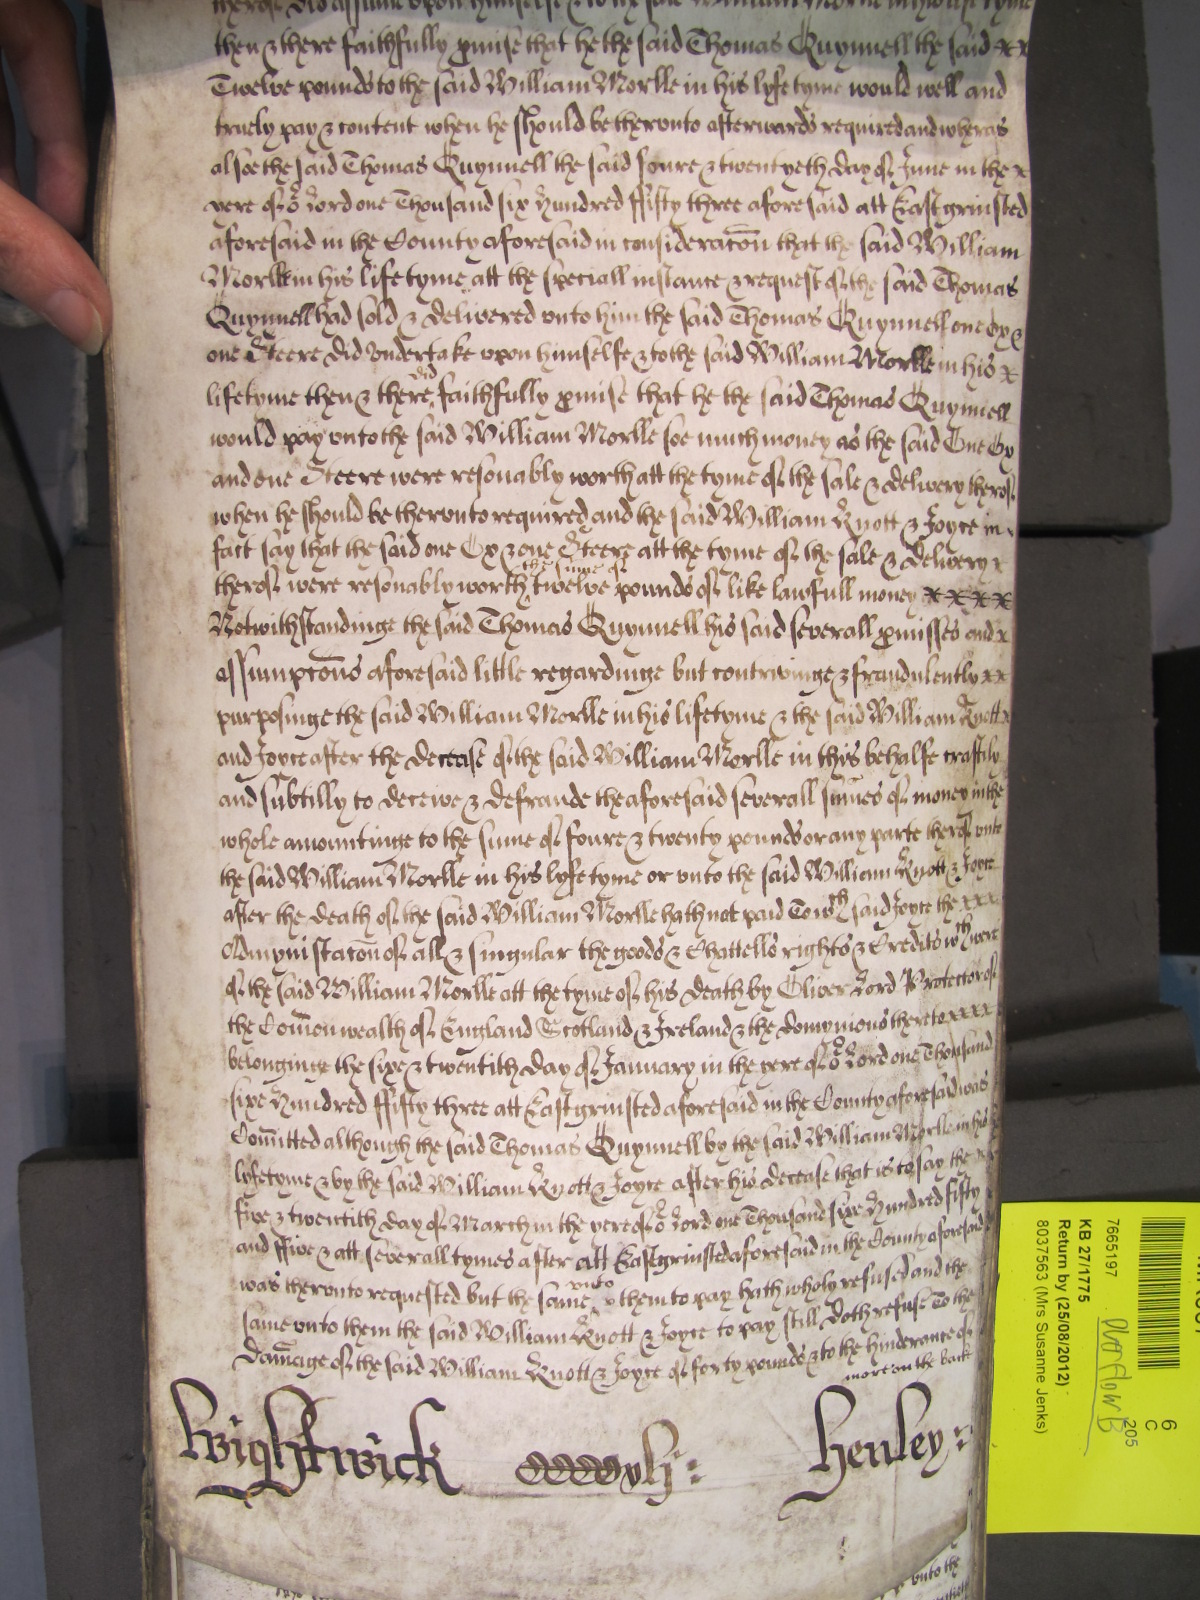 therof did assume upon himselfe & to the said William Morlle in his life tyme
then & there faithfully pmise that he the said Thomas Quynnell the said x x
Twelve pounds to the said William Morlle in his lyfe tyme would well and
truely pay & content when he should be therunto afterwards required and wheras
alsoe the said Thomas Quynnell the said foure & twentyeth day of June in the x
yere of or Lord one Thousand six Hundred ffifty three aforesaid att Eastgrinsted
aforesaid in the County aforesaid in consideracon that the said William
Morlle in his life tyme att the speciall instance & request of the said Thomas
Quynnell had sold & delivered unto him the said Thomas Quynnell one Ox &
one Steere did undertake upon himselfe & to the said William Morlle in his x
lifetyme then & there did faithfully pmise that he the said Thomas Quynnell
would pay unto the said William Morlle soe much money as the said One Ox
and one Steere were resonably worth att the tyme of the sale & delivery therof
when he should be therunto required and the said William Knott & Joyce in
fact say that the said one Ox & one Steere att the tyme of the sale & delivery x
therof were resonably worth the sume of twelve pounds of like lawfull money x x x x
Notwithstandinge the said Thomas Quynnell his said severall pmisses and x
assumpcons aforesaid little regardinge but contrivinge & fraudulently x x
purposinge the said William Morlle in his lifetyme & the said William Knott x
and Joyce after the decease of the said William Morlle in this behalfe craftily
and subtilly to deceive & defraude the aforesaid severall sumes of money in the
whole amountinge to the sume of foure & twenty pounds or any parte therof unto
the said William Morlle in his lyfe tyme or unto the said William Knott & Joyce
after the death of the said William Morlle hath not paid To wch said Joyce the x x x
Admynistracon of all & singular the goods & Chattells rights & Credits wch were
of the said William Morlle att the tyme of his death by Oliver Lord Protector of
the Comon wealth of England Scotland & Ireland & the domynions thereto x x x x
belonginge the sixe & twentith day of January in the yere of or Lord one Thousand
sixe Hundred ffifty three att Eastgrinsted aforesaid in the County aforesaid was
Comitted although the said Thomas Quynnell by the said William Morlle in his
lyfetyme & by the said William Knott & Joyce after his decease that is to say the
five & twentith day of March in the yere of or Lord one Thousand sixe Hundred fifty
and ffive & att severall tymes after att Eastgrinsted aforesaid in the County aforesaid
was therunto requested but the same unto them to pay hath wholy refused and the
same unto them the said William Knott & Joyce to pay still doth refuse To the
damage of the said William Knott & Joyce of forty pounds & to the hinderance of
more on the back
Wightwick
Henley
7665197
KB 27/1775
Return by (25/08/2012)
8037563 (Mrs Susanne Jenks)
6
C
205